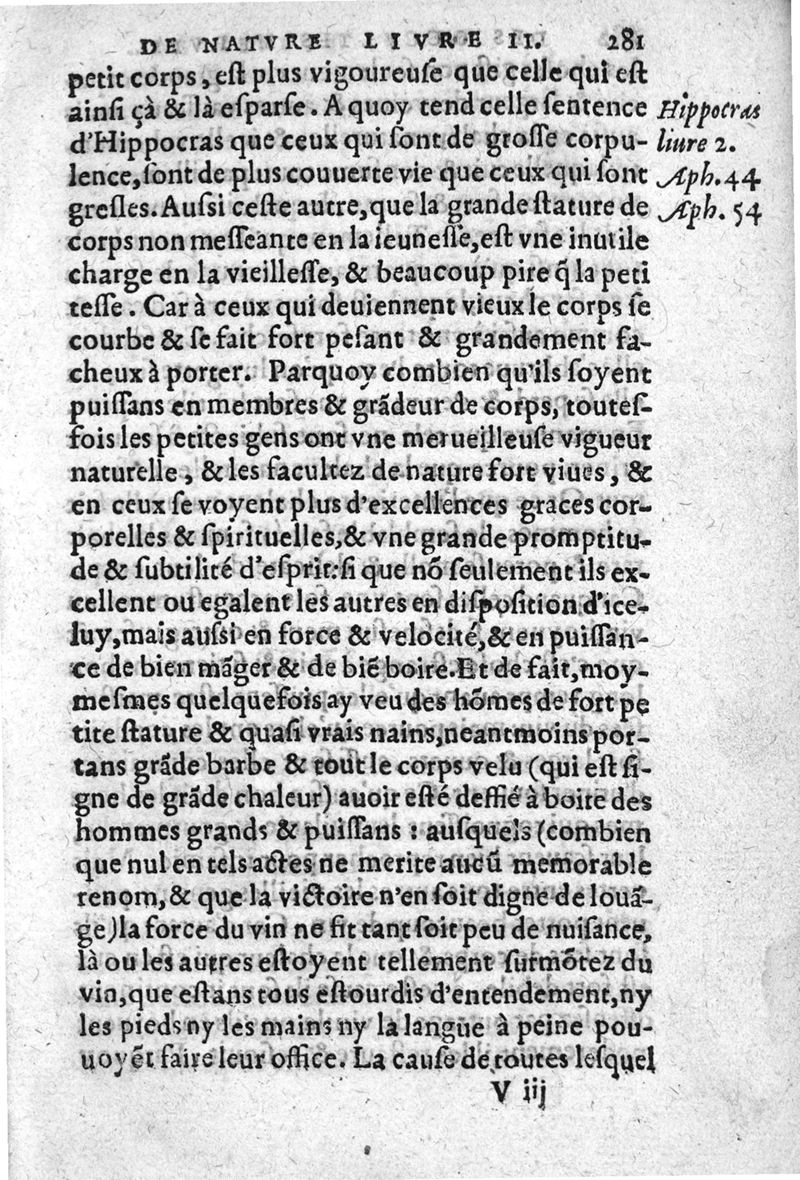 DE NATVRE LIVRE II. 281
petit corps, eſt plus vigoureuſe que celle qui eſt
ainſi çà & là eſparſe. A quoy tend celle ſentence Hippocras
d'Hippocras que ceux qui ſont de groſſe corpu- liure 2.
lence, ſont de plus couuerte vie que ceux qui ſont Aph. 44
greſles. Auſsi ceſte autre, que la grande ſtature de Aph. 54
corps non meſſeante en la ieuneſſe, eſt vne inutile
charge en la vieilleſſe, & beaucoup pire q̃ la peti
teſſe. Car à ceux qui deuiennent vieux le corps ſe
courbe & ſe fait fort peſant & grandement fa-
cheux à porter. Parquoy combien qu'ils ſoyent
puiſſans en membres & grãdeur de corps, touteſ-
fois les petites gens ont vne merueilleuſe vigueur
naturelle, & les facultez de nature fort viues, &
en ceux ſe voyent plus d'excellences graces cor-
porelles & ſpirituelles, & vne grande promptitu-
de & ſubtilité d'eſprit: ſi que nõ ſeulement ils ex-
cellent ou egalent les autres en diſpoſition d'ice-
luy, mais auſsi en force & velocité, & en puiſſan-
ce de bien mãger & de biẽ boire. Et de fait, moy-
meſmes quelquefois ay veu des hõmes de fort pe
tite ſtature & quaſi vrais nains, neantmoins por-
tans grãde barbe & tout le corps velu (qui eſt ſi-
gne de grãde chaleur) auoir eſté deffié à boire des
hommes grands & puiſſans : auſquels (combien
que nul en tels actes ne merite aucũ memorable
renom, & que la victoire n'en ſoit digne de louã-
ge) la force du vin ne fit tant ſoit peu de nuiſance,
là ou les autres eſtoyent tellement ſurmõtez du
vin, que eſtans tous eſtourdis d'entendement, ny
les pieds ny les mains ny la langue à peine pou-
uoyẽt faire leur office. La cauſe de toutes leſquel
V iij